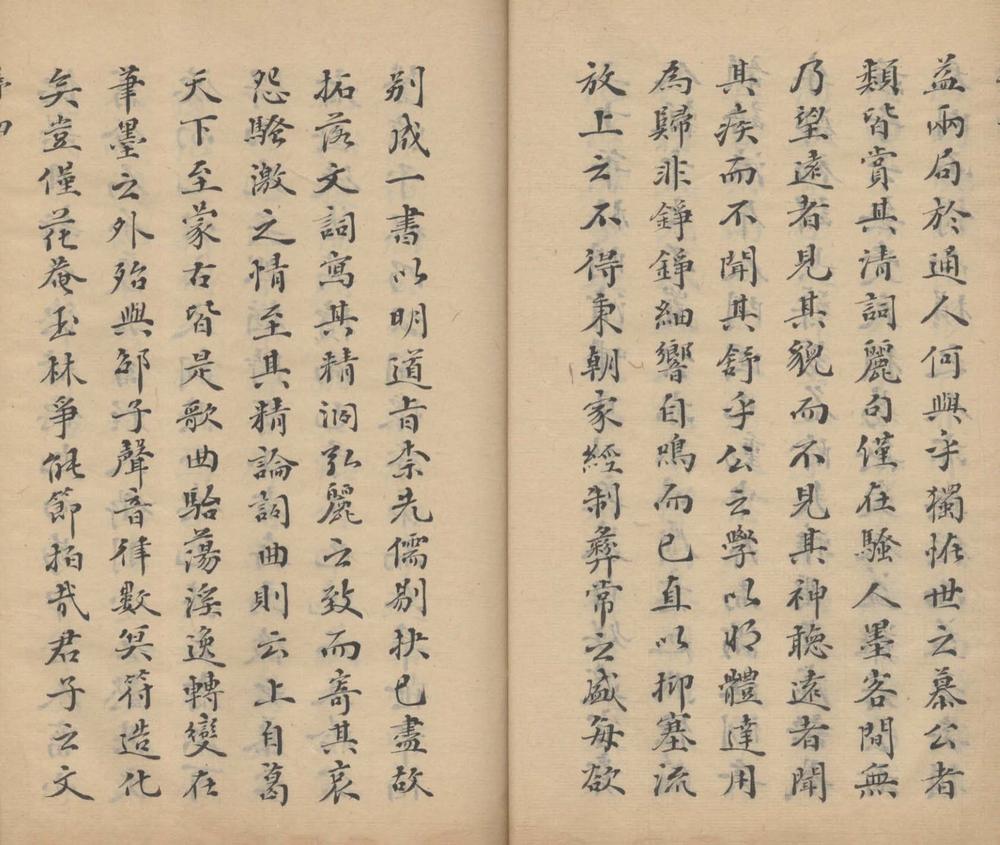 益兩局於通人何與乎獨怪世之慕公者
類皆賞其清詞麗句僅在騷人墨客間無
乃望遠者見其貌而不見其神聽遠者聞
其疾而不聞其舒乎公之學以明體達用
為歸非錚錚細響自鳴而已直以抑塞流
放上之不得秉朝家經制彝常之盛每欲
別成一書以明道旨柰先儒剔抉已盡故
拓落文詞寫其精洞弘麗之致而寄其哀
怨騷激之情至其精論詞曲則云上自葛
天下至蒙古皆是歌曲駘蕩淫逸轉變在
筆墨之外殆與邵子聲音律數冥符造化
矣豈僅花菴玉林爭能節拍哉君子之文